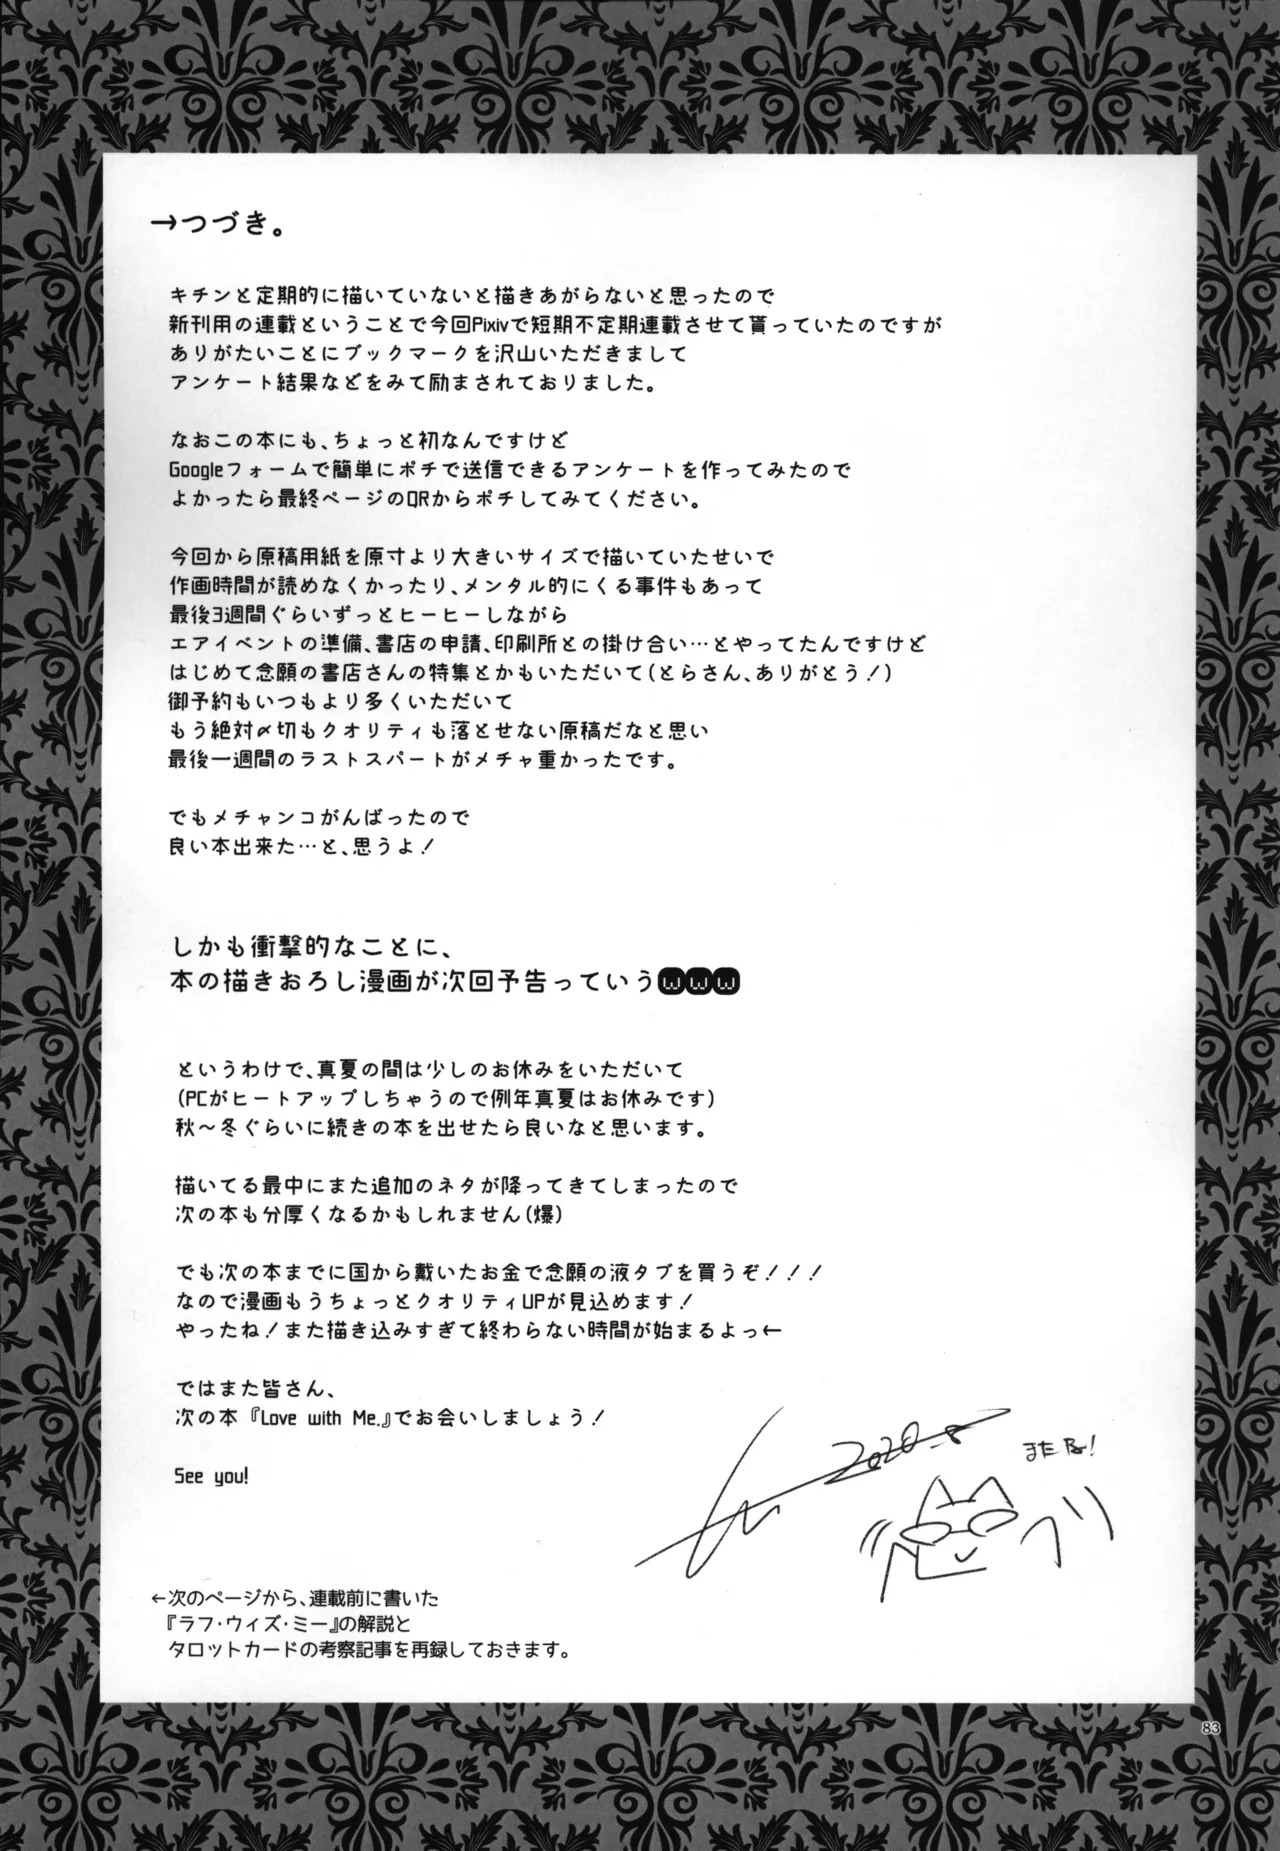 →つづき。
キチンと定期的に描いていないと描きあがらないと思ったので
新刊用の連載ということで今回Pixivで短期不定期連載させて貰っていたのですが
ありがたいことにブックマークを沢山いただきまして
アンケート結果などをみて励まされておりました。
なおこの本にも、ちょっと初なんですけど
Googleフォームで簡単にポチで送信できるアンケートを作ってみたので
よかったら最終ページのQRからポチしてみてください。
今回から原稿用紙を原寸より大きいサイズで描いていたせいで
作画時間が読めなくかったり、メンタル的にくる事件もあって
最後3週間ぐらいずっとヒーヒーしながら
エアイベントの準備、書店の申請、印刷所との掛け合い…とやってたんですけど
はじめて念願の書店さんの特集とかもいただいて(とらさん、ありがとう!)
御予約もいつもより多くいただいて
もう絶対〆切もクオリティも落とせない原稿だなと思い
最後一週間のラストスパートがメチャ重かったです。
でもメチャンコがんばったので
良い本出来た…と、思うよ!
しかも衝撃的なことに、
本の描きおろし漫画が次回予告っていうwww
というわけで、真夏の間は少しのお休みをいただいて
(PCがヒートアップしちゃうので例年真夏はお休みです)
秋〜冬ぐらいに続きの本を出せたら良いなと思います。
描いてる最中にまた追加のネタが降ってきてしまったので
次の本も分厚くなるかもしれません(爆)
でも次の本までに国から戴いたお金で念願の液タブを買うぞ!!!
なので漫画もうちょっとクオリティUPが見込めます!
やったね!また描き込みすぎて終わらない時間が始まるよっ←
ではまた皆さん、
次の本『Love with Me.』でお会いしましょう!
See you!
2020.8
またね!
←次のページから、連載前に書いた
『ラフ・ウィズ・ミー』の解説と
タロットカードの考察記事を再録しておきます。
83